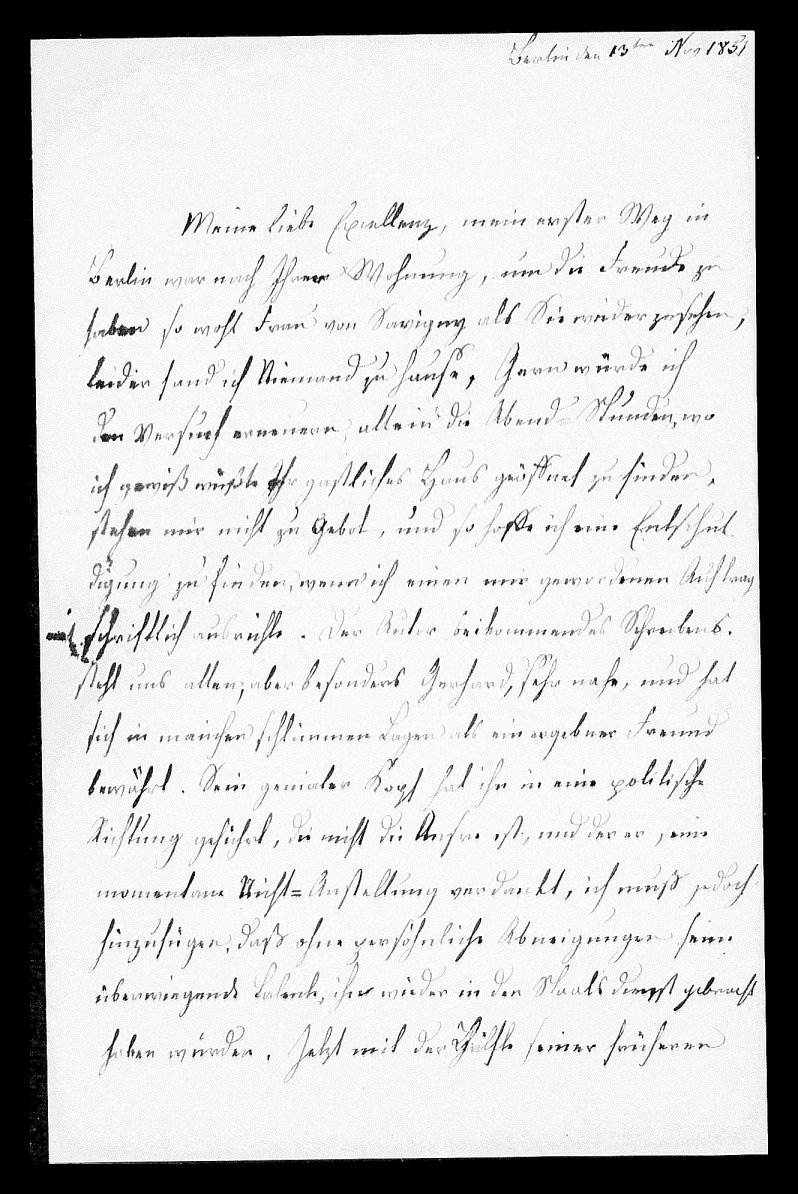 Berlin den 13ten Nov 1851
Meine liebe Excellenz, mein erster Weg in
Berlin war nach Ihrer Wohnung, um die Freude zu
haben so wohl Frau von Savigny als Sie wiederzusehen,
leider fand ich Niemand zu Hause, Gern würde ich
den Versuch erneuern, allein die Abend=Stunden, wo
ich gewiß wüßte Ihr gastliches Haus geöffnet zu finden,
stehen mir nicht zu Gebot, und so hoffe ich eine Entschul
digung zu finden, wenn ich einen mir gewordenen Auftrag
schriftlich ausrichte. Der Autor beikommendes Schreibens.
steht uns allen, aber besonders Gerhard, sehr nahe, und hat
sich in manchen schlimmen Lagen als ein ergebner Freund
bewährt. Sein genialer Kopf hat ihn in eine politische
Richtung geführt, die nicht die Unsre ist, und der er seine
momentane Nicht=Anstellung verdankt, ich muß jedoch
hinzufügen, daß ohne persöhnliche Abneigungen seine
überwiegende Talente, ihn wieder in den Staatsdienst gebracht
haben würden. Jetzt mit der Hälfte seiner früheren